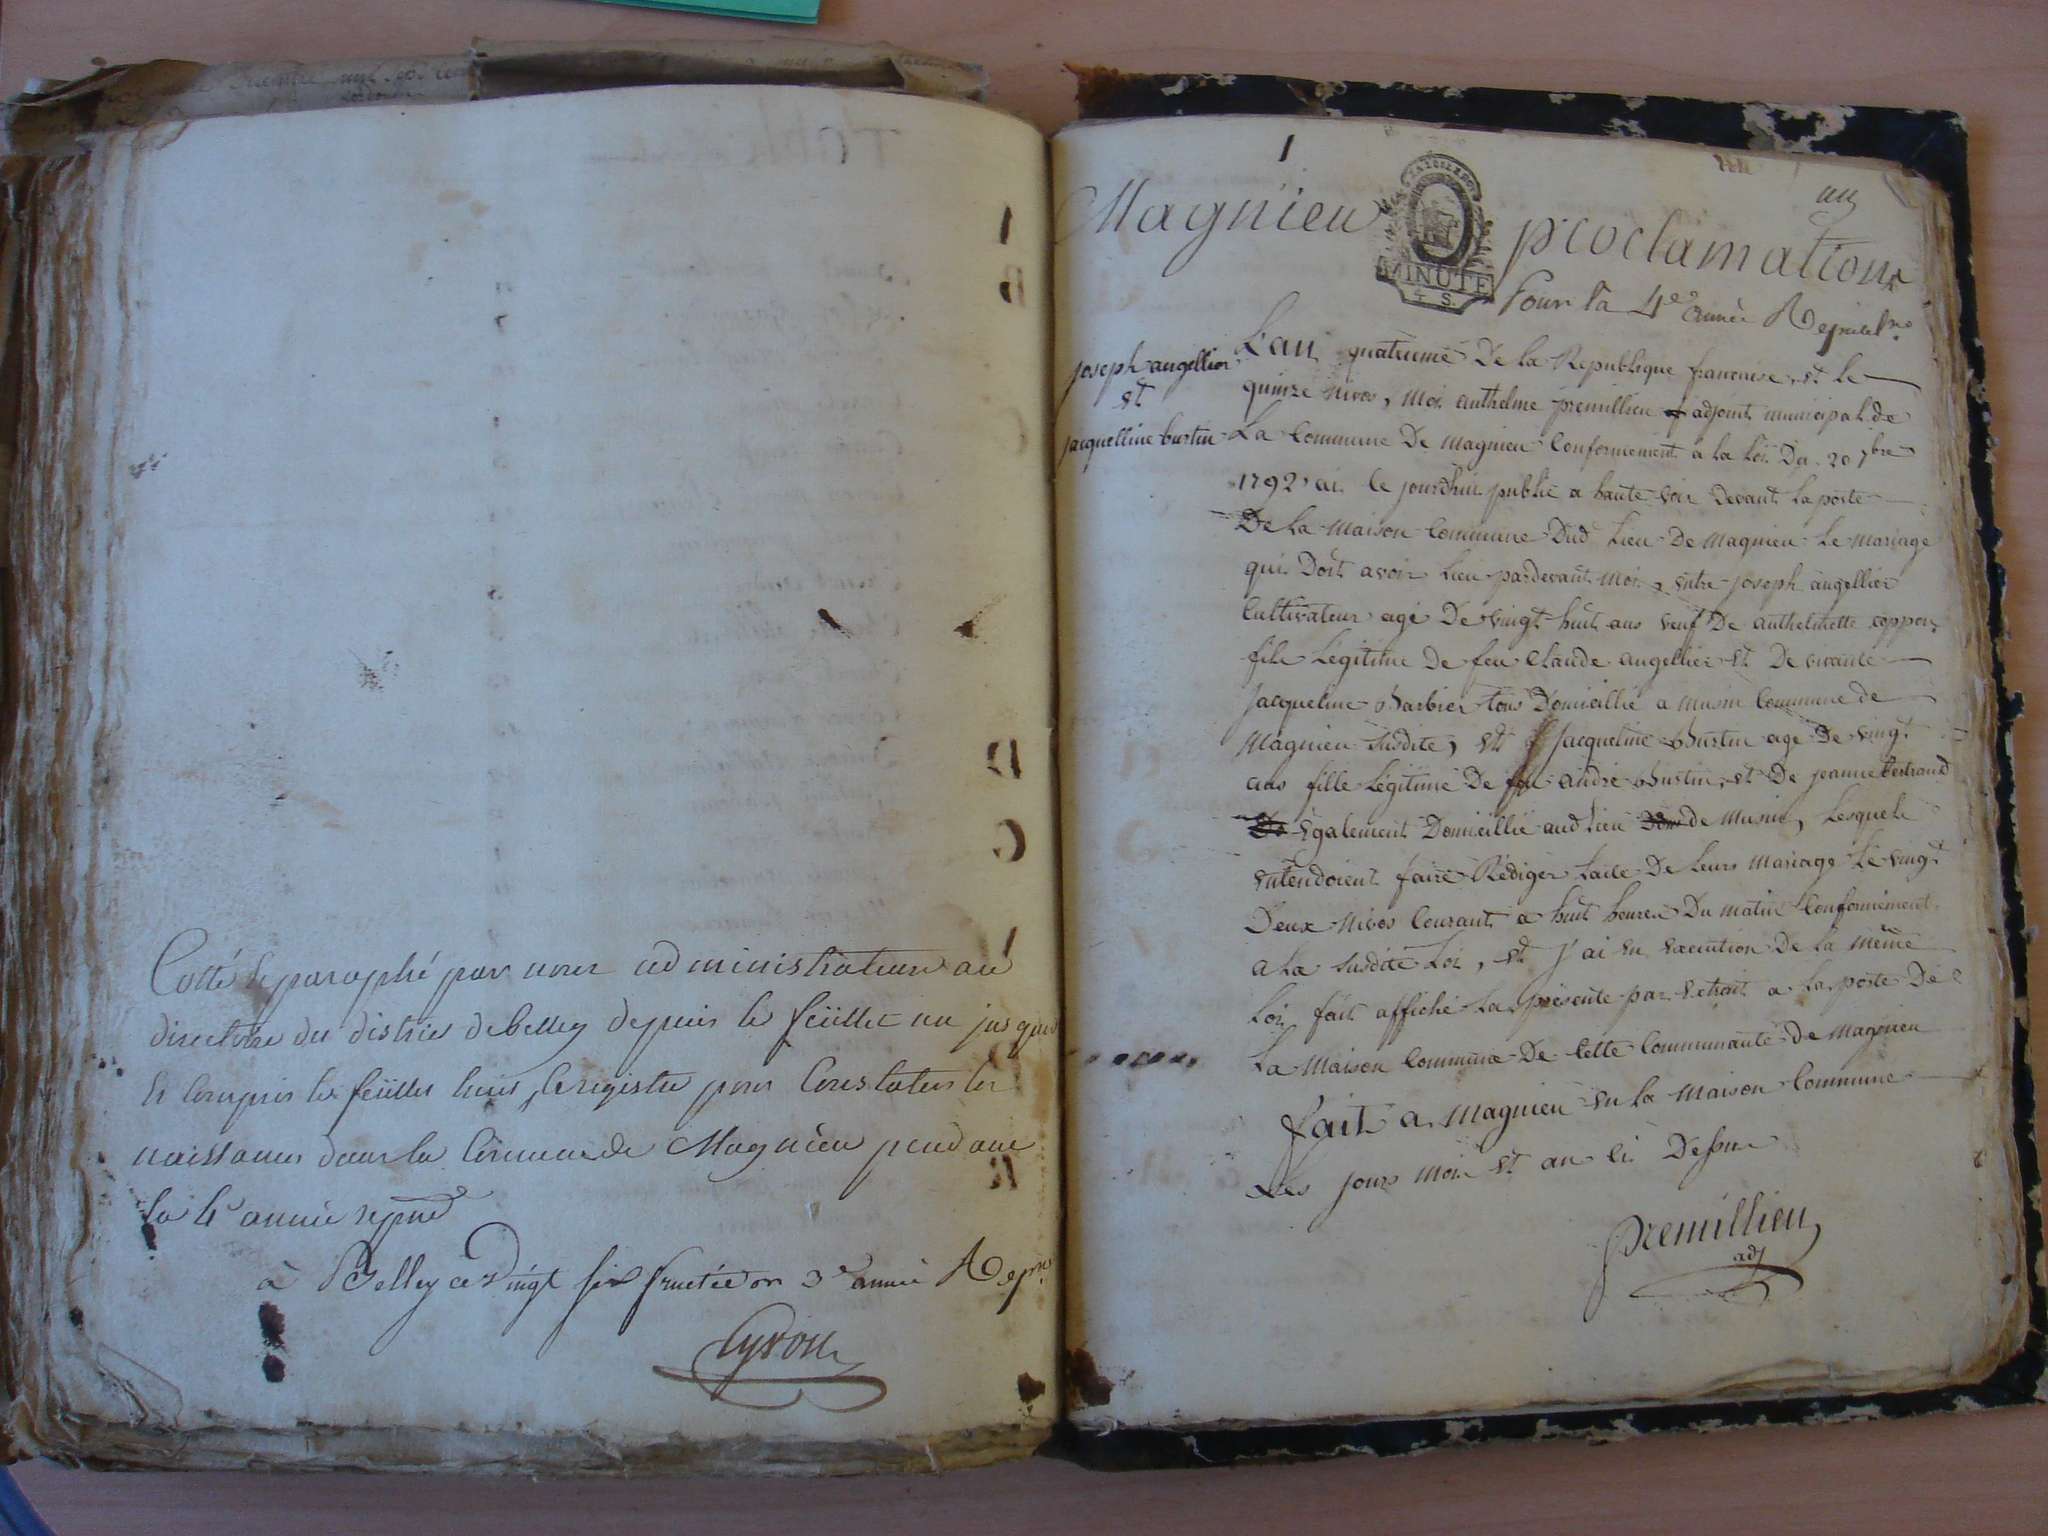 Cotté et paraphé par nous administrateur au
directoire du district de belley depuis le feüillet un jusques
et compris le feüillet huit, le registre pour Constater les
naissances dans la Commune de Magnieu pendant
la 4e année repne
à Belley ce vingt six fructidor 3e année Repne
Cyvoct
1
un
Magnieu
MINUTE
4 S.
proclamations
Pour la 4e année Republne
joseph angellier
et
jacquelline burtin
L'an quatrieme De la Republique francaise, et le
quinze nivos, moi anthelme premillieu adjoint municipal de
La Commune De magnieu Conformement a la Loi Du 20 7bre
1792 ai ce jourdhui publié a haute voix devant la porte
De la maison Commune Dud Lieu De magnieu le mariage
qui Doit avoir Lieu pardevant moi, entre joseph angellier
Cultivateur agé De vingt huit ans veuf De anthelmette
fils Légitime De feu Claude angellier et De vivante
jacqueline Barbier tous Domicillié a musin Commune de
Magnieu susdite, et jacqueline Burtin age De vingt
ans fille Légitime De feu andré Burtin, et De jeanne bertrand
Egalement Domicillié aud Lieu de musin, Lesquels
entendoient faire Rédiger Lacte De Leurs mariage Le vingt
Deux nivos Courant a huit heures Du matin Conformement
a La susdite Loi, et j'ai en execution De La même
Loi fait affiché La présente par extrait a La porte De
La maison Commune De Cette Communauté De magnieu
fait a magnieu en la maison Commune
Les jours mois et an ci Dessus
premillieu
adj